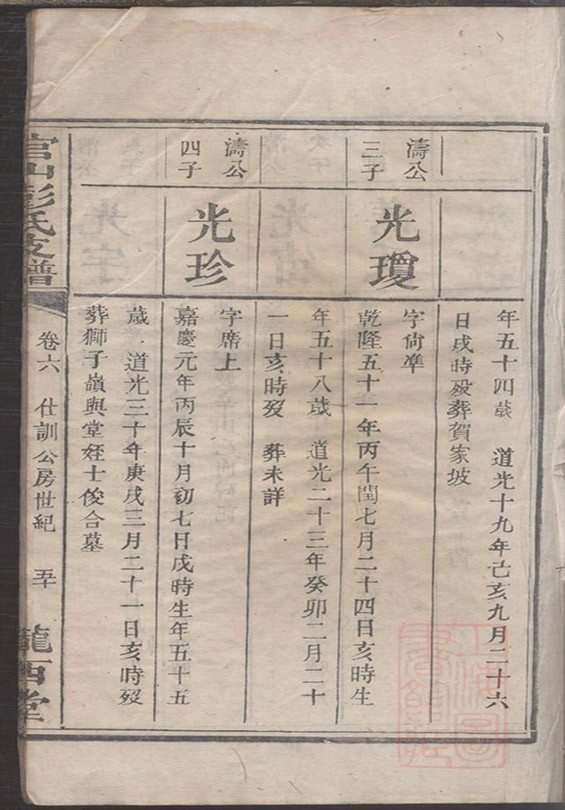 年五十四歲　道光十九年己亥九月二十六
日戌時歿葬賀家坡
濤公
三子
光瓊
字尙準
乾隆五十一年丙午閏七月二十四日亥時生
年五十八歲　道光二十三年癸卯二月二十
一日亥時歿　葬未詳
濤公
四子
光珍
字席上
嘉慶元年丙辰十月初七日戌時生年五十五
歲　道光三十年庚戌三月二十一日亥時歿
葬獅子嶺與堂姪士俊合墓
官山彭氏支譜
卷六　仕訓公房世紀　五十
隴西堂